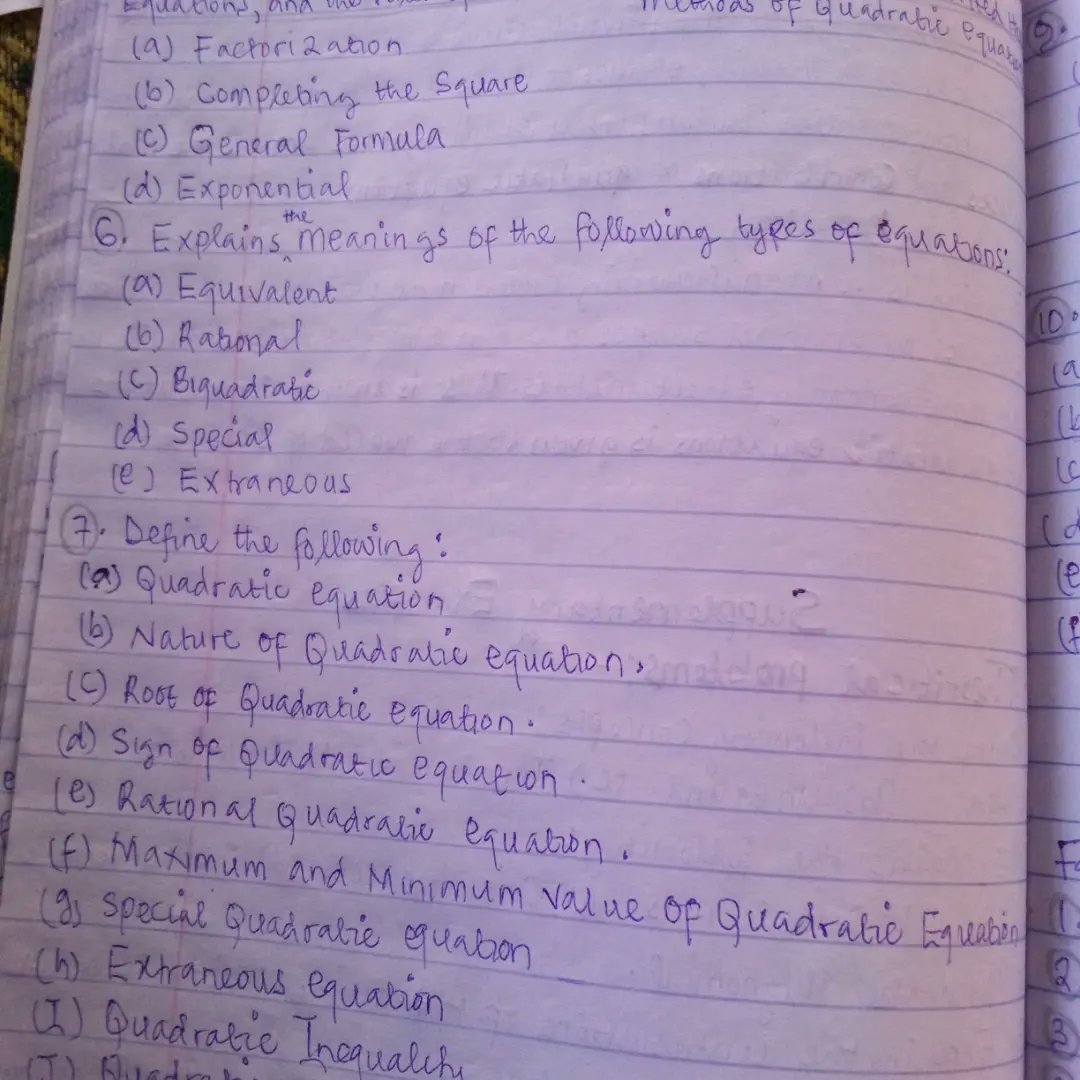 Equations, and the
methods of Quadratic equa
(a) Factorization
(b) Completing the Square
(c) General Formula
(d) Exponential
6. Explains the meanings of the following types of equations:
(a) Equivalent
(b) Rational
(c) Biquadratic
(d) Special
(e) Extraneous
7. Define the following:
(a) Quadratic equation
(b) Nature of Quadratic equation.
(c) Root of Quadratic equation.
(d) Sign of Quadratic equation.
(e) Rational Quadratic equation.
(f) Maximum and Minimum value of Quadratic Equation
(g) Special Quadratic equation
(h) Extraneous equation
(I) Quadratic Inequality
(J)
9.
10.
(a
(b
(c
(d
(e
(f
1.
2
3